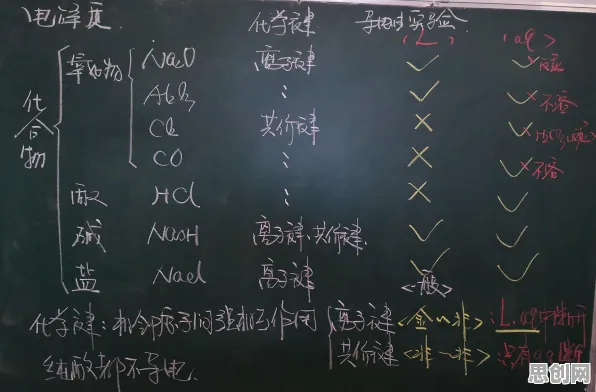 电解质 化学键 导电性实验
(L) (aq)
化合物
氧化物 Na₂O 离子键 ✓ ✓ 反应
Al₂O₃ : ✓ ✓× 不溶
共价键 × ✓×
CO : × ✓× 不溶
酸 HCl : × ✓
碱 NaOH 离子键、共价键 ✓ ✓
盐 NaCl 离子键 ✓ ✓
<一般>
化学键:相邻原子间强相互作用 离子键<金~非>:L、aq中断开
纯酸都不导电. 共价键<非~非>:只有aq断
思创网